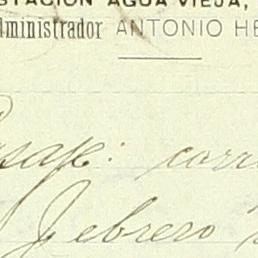 STACIÓN AGUA VIEJA,
dministrador ANTONIO HE
asaje: corr
Febrero